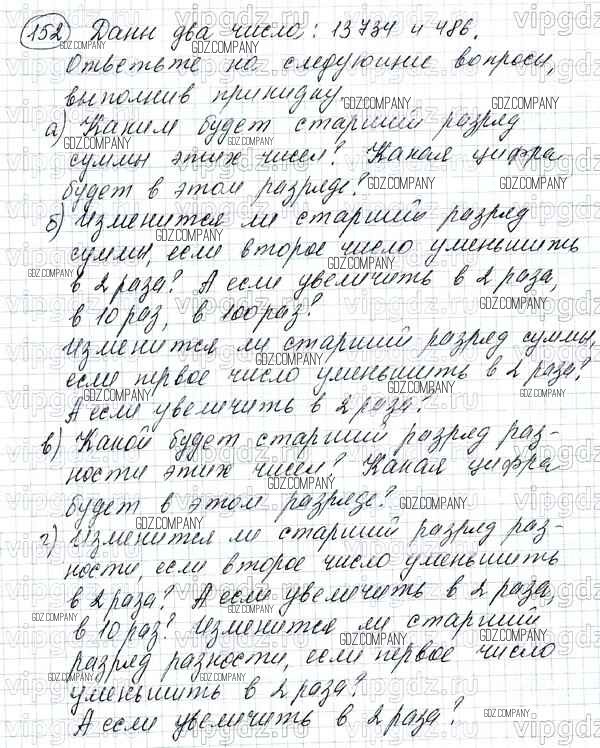 152 Даны два число: 13734 и 486.
Ответьте на следующие вопросы,
выполнив прикидку.
а) Каким будет старший разряд
суммы этих чисел? Какая цифра
будет в этом разряде?
б) Изменится ли старший разряд
суммы, если второе число уменьшить
в 2 раза? А если увеличить в 2 раза,
в 10 раз, в 100 раз?
Изменится ли старший разряд суммы,
если первое число уменьшить в 2 раза?
А если увеличить в 2 раза?
в) Какой будет старший разряд раз-
ности этих чисел? Какая цифра
будет в этом разряде?
г) Изменится ли старший разряд раз-
ности, если второе число уменьшить
в 2 раза? А если увеличить в 2 раза,
в 10 раз? Изменится ли старший
разряд разности, если первое число
уменьшить в 2 раза?
А если увеличить в 2 раза?
GDZ.COMPANY
vipgdz.ru